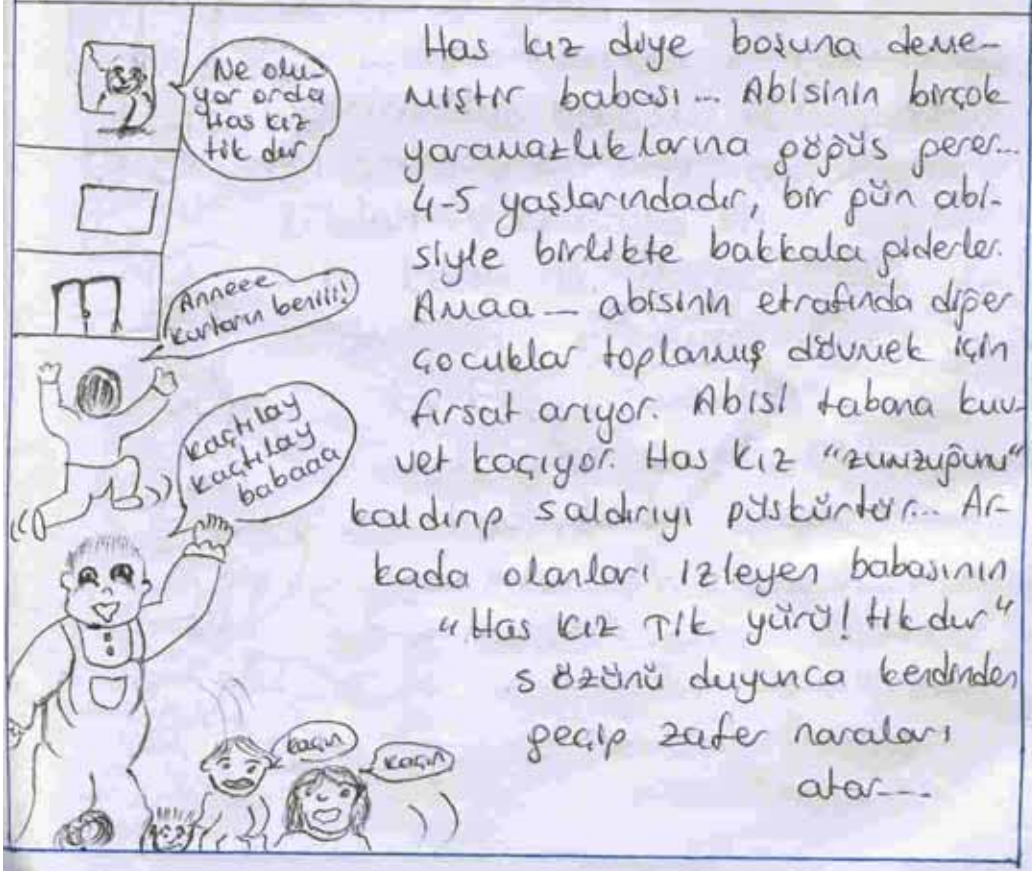 Ne olu-
yor orda
Has kız
tik dur
Anneee
kurtarın beniii!
kaçtılay
kaçtılay
babaaa
kaçın
kaçın
Has kız diye boşuna deme-
miştir babası... Abisinin birçok
yaramazlıklarına göğüs gerer...
4-5 yaşlarındadır, bir gün abi-
siyle birlikte bakkala giderler.
Amaa... abisinin etrafında diğer
çocuklar toplanmış dövmek için
fırsat arıyor. Abisi tabana kuv-
vet kaçıyor. Has Kız "zumzuğunu"
kaldırıp saldırıyı püskürtür... Ar-
kada olanları izleyen babasının
"Has Kız Tik yürü! tikdur"
sözünü duyunca kendinden
geçip zafer naraları
atar....